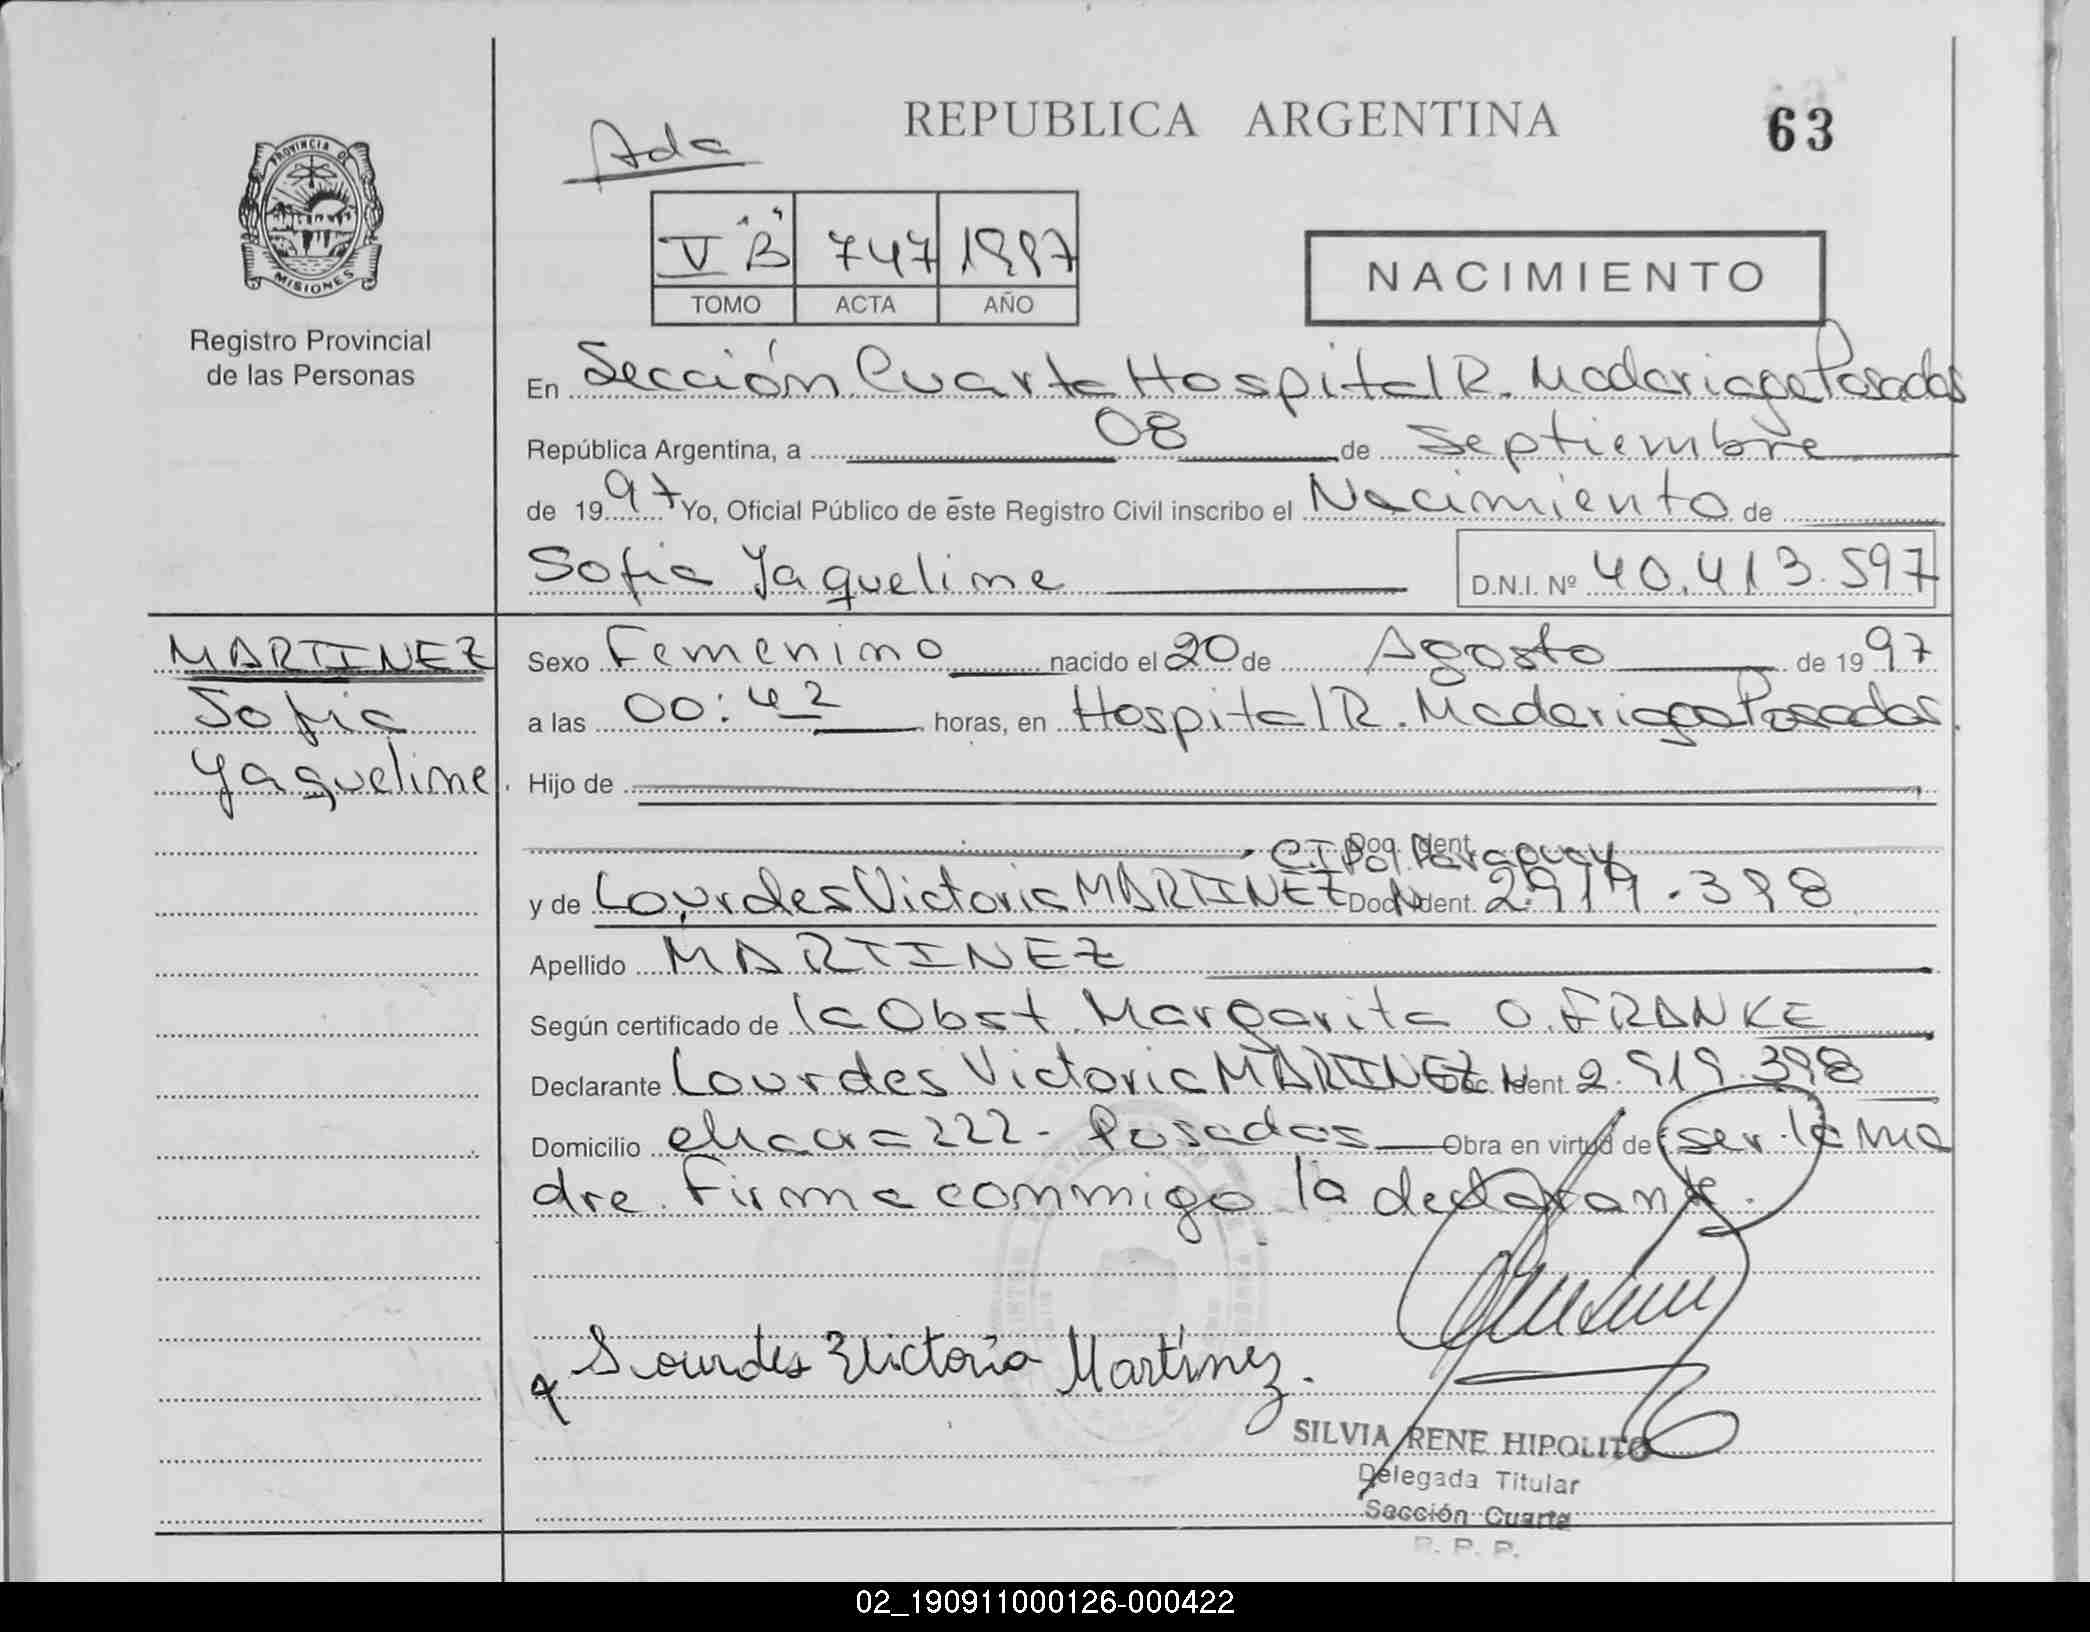 REPUBLICA ARGENTINA
63
Ada
V "B" 747 1997
TOMO ACTA AÑO
NACIMIENTO
PROVINCIA DE
MISIONES
Registro Provincial
de las Personas
En Sección Cuarta Hospital R. Madariaga Posadas
República Argentina, a 08 de Septiembre
de 1997 Yo, Oficial Público de este Registro Civil inscribo el Nacimiento de
Sofia Yaqueline D.N.I. Nº 40.413.597
MARTINEZ
Sofia
Yaqueline
Sexo Femenino nacido el 20 de Agosto de 1997
a las 00:42 horas, en Hospital R. Madariaga Posadas.
Hijo de
Doc. Ident. CI Pol Paraguay
y de Lourdes Victoria MARTINEZ Doc. Ident. Nº 2.919.398
Apellido MARTINEZ
Según certificado de la Obst. Margarita O. FRANKE
Declarante Lourdes Victoria MARTINEZ Doc. Ident. 2.919.398
Domicilio 222 - Posadas Obra en virtud de ser la ma
dre. Firma conmigo la declarante.
Lourdes Victoria Martínez.
SILVIA RENE HIPOLITO
Delegada Titular
Sección Cuarta
R. P. P.
02_190911000126-000422